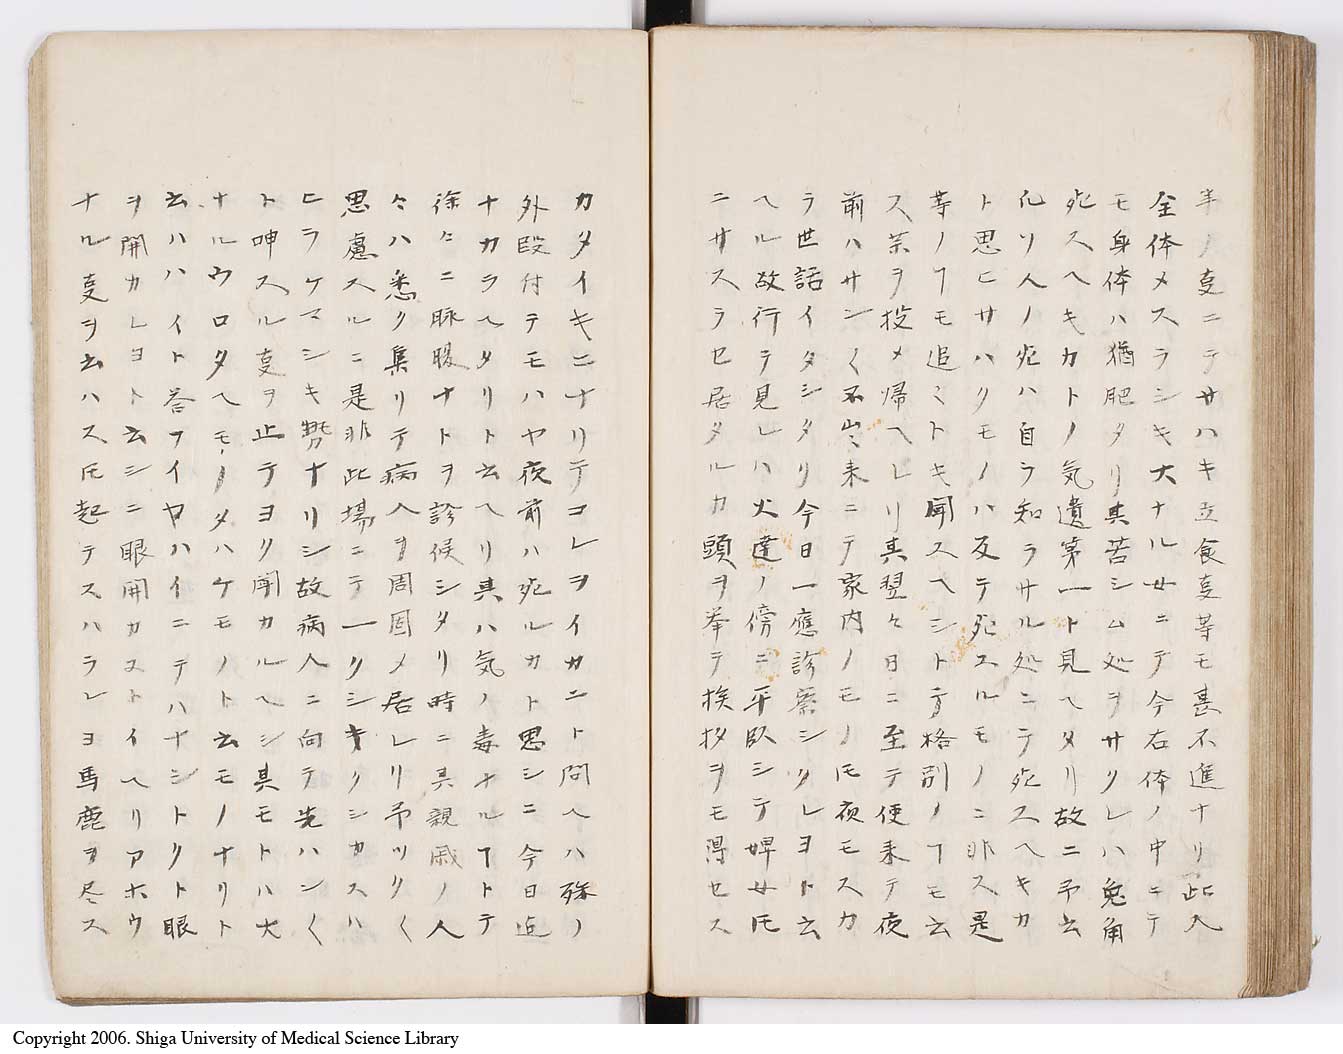 事ノ叓ニテサハキ立食叓等モ甚不進ナリ此人
全体メスラシキ大ナル女ニテ今右体ノ中ニテ
モ身体ハ猶肥タリ其苦シム処ヲサクレハ兎角
死スヘキカトノ気遣第一ト見ヘタリ故ニ予云
凡ソ人ノ死ハ自ラ知ラサル処ニテ死スヘキカ
ト思ヒサハクモノハ反テ死スルモノニ非ス是
等ノヿモ追々トキ聞スヘシト旁格別ノヿモ云
ス茶ヲ投メ帰ヘレリ其翌々日ニ至テ使来テ夜
前ハサン〱不出来ニテ家内ノモノ𪜈夜モスカ
ラ世話イタシタリ今日一應診察シクレヨト云
ヘル故行テ見レハ火達ノ傍ニ平臥シテ婢女𪜈
ニサスラセ居タルカ頭ヲ挙テ挨拶ヲモ得セス
カタイキニナリテコレヲイカニト問ヘハ殊ノ
外段付テモハヤ夜前ハ死ルカト思シニ今日迄
ナカラヘタリト云ヘリ其ハ気ノ毒ナルヿトテ
徐々ニ脉腹ナトヲ診候シタリ時ニ其親戚ノ人
々ハ悉ク集リテ病人ヲ周囲メ居レリ予ツク〱
思慮スルニ是非此場ニテ一クシキクシカスハ
ヒラケマシキ勢ナリシ故病人ニ向テ先ハン〱
ト呻スル叓ヲ止テヨク聞カルヘシ其モトハ大
ナルウロタヘモノタハケモノト云モノナリト
云ハハイト答フイヤハイニテハナシトクト眼
ヲ開カレヨト云シニ眼開カヌトイヘリアホウ
ナル叓ヲ云ハス𪜈起テスハラレヨ馬鹿ヲ尽ス